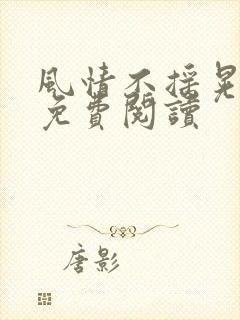 風情不搖晃
免費閱讀
唐影